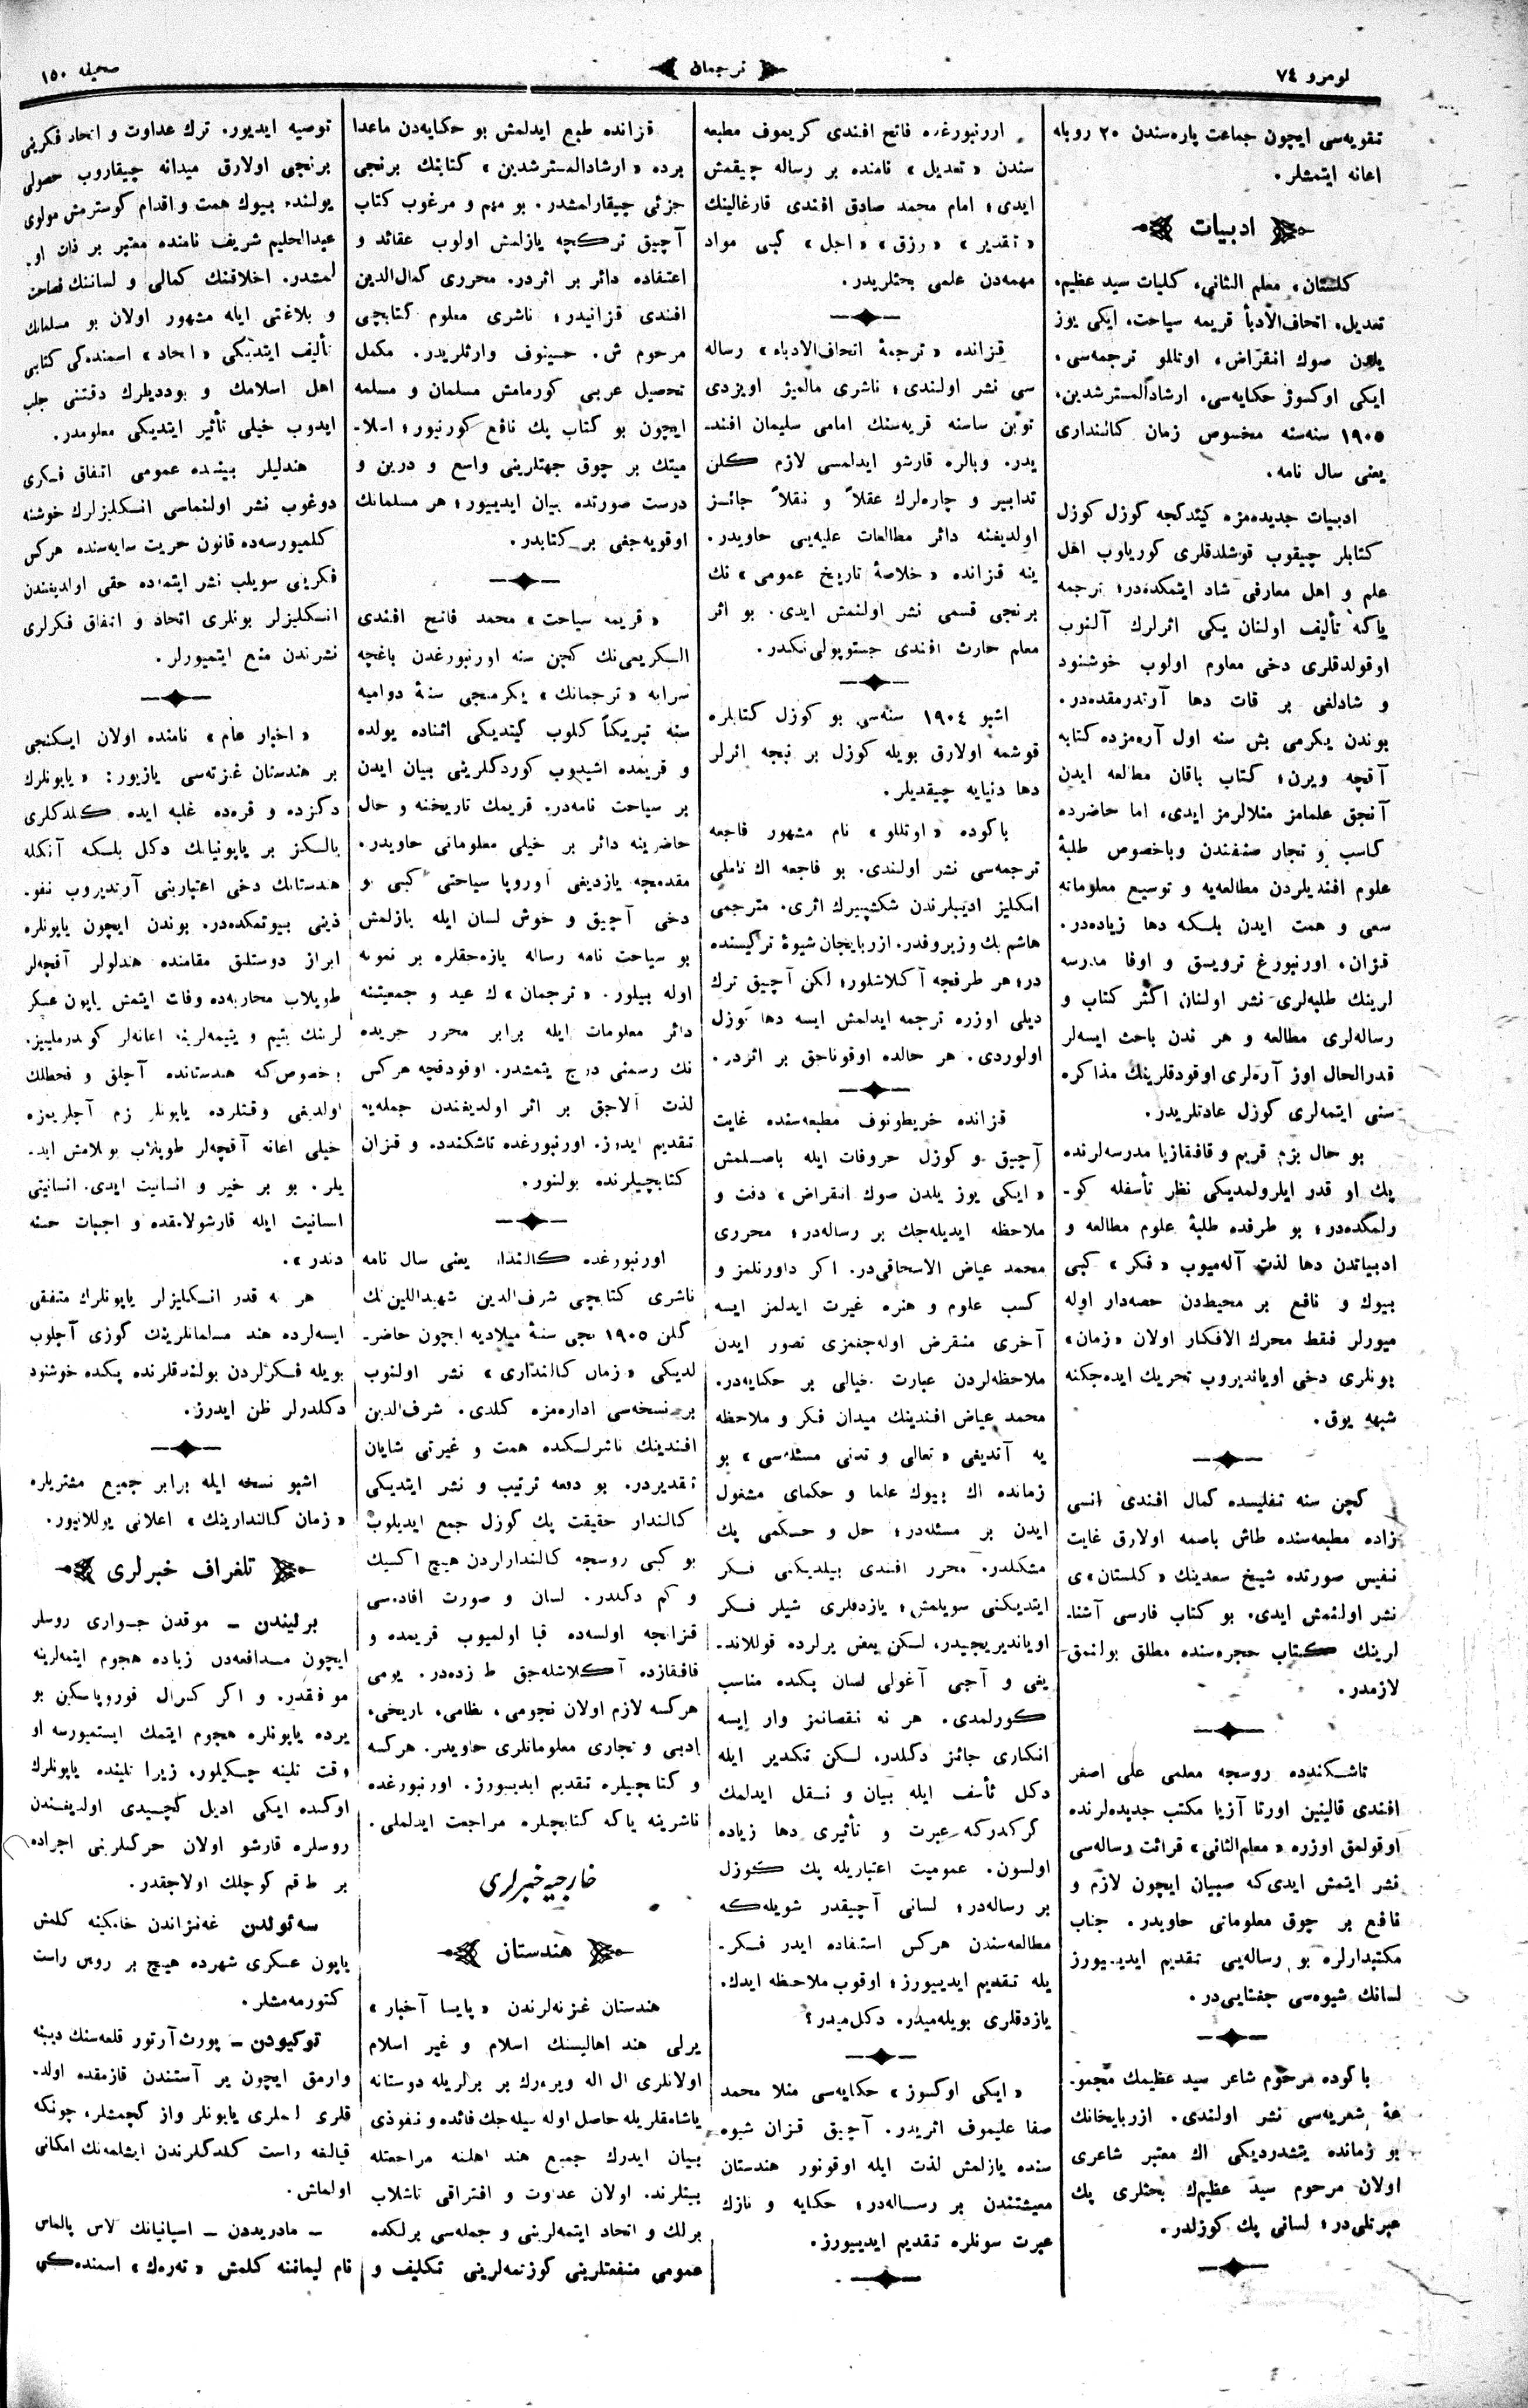 نومرو ٧٤
ترجمان
صحیفه ١٥٠
تقویه‌سی ایچون جماعت پاره‌سندن ٢٠ روبله
اعانه ایتمشلر.
ادبیات
کلستان، معلم الثانی، کلیات سید عظیم،
تعدیل، اتحاف‌الأدبأ قریمه سیاحت، ایکی یوز
یلدن صوك انقراض، اوتللو ترجمه‌سی،
ایکی اوکسوز حکایه‌سی، ارشادالمسترشدین،
١٩٠٥ سنه‌سنه مخصوص زمان کالنداری
یعنی سال نامه.
ادبیات جدیده‌مزه کیتدکجه کوزل کوزل
کتابلر چیقوب قوشلدقلری کوریاوب اهل
علم و اهل معارفی شاد ایتمکده‌در؛ ترجمه
یاکه تألیف اولنان یکی اثرلرك آلنوب
اوقولدقلری دخی معلوم اولوب خوشنود
و شادلغی بر قات دها آرتدرمقده‌در.
بوندن یکرمی بش سنه اول آره‌مزده کتابه
آقچه ویرن؛ کتاب باقان مطالعه ایدن
آنجق علمامز منلالرمز ایدی، اما حاضرده
کاسب و تجار صنفندن وباخصوص طلبهٔ
علوم افندیلردن مطالعه‌یه و توسیع معلوماته
سعی و همت ایدن بلکه دها زیاده‌در.
قزان، اورنبورغ ترویسق و اوفا مدرسه
لرینك طلبه‌لری نشر اولنان اکثر کتاب و
رساله‌لری مطالعه و هر ندن باحث ایسه‌لر
قدرالحال اوز آره‌لری اوقودقلرینك مذاکره
سنی ایتمه‌لری کوزل عادتلریدر.
بو حال بزم قریم و قافقازیا مدرسه‌لرنده
پك او قدر ایلرولمدیکی نظر تأسفله کو-
رلمکده‌در؛ بو طرفده طلبهٔ علوم مطالعه و
ادبیاتدن دها لذت آله‌میوب «فکر» کبی
بیوك و نافع بر محیط‌دن حصه‌دار اوله
میورلر فقط محرك الافکار اولان «زمان»
بونلری دخی اویاندیروب تحریك ایده‌جکنه
شبهه یوق.
کچن سنه تفلیسده کمال افندی انسی
زاده مطبعه‌سنده طاش باصمه اولارق غایت
نفیس صورتده شیخ سعدینك «کلستان»ی
نشر اولنمش ایدی. بو کتاب فارسی آشنا-
لرینك کتاب حجره‌سنده مطلق بولنمق
لازمدر.
تاشکندده روسجه معلمی علی اصغر
افندی قالینین اورتا آزیا مکتب جدیده‌لرنده
اوقولمق اوزره «معلم‌الثانی» قرائت رساله‌سی
نشر ایتمش ایدی‌که صبیان ایچون لازم و
نافع بر چوق معلوماتی حاویدر. جناب
مکتبدارلره بو رساله‌یی تقدیم ایدییورز
لسانك شیوه‌سی جغتایی‌در.
باکوده مرحوم شاعر سید عظیمك مجمو-
عهٔ شعریه‌سی نشر اولندی. ازربایجانك
بو زمانده یتشدردیکی اك معتبر شاعری
اولان مرحوم سید عظیم‌ك بحثلری پك
عبرتلی‌در؛ لسانی پك کوزلدر.
اورنبورغده فاتح افندی کریموف مطبعه
سندن «تعدیل» نامنده بر رساله چیقمش
ایدی؛ امام محمد صادق افندی قارغالینك
«تقدیر» «رزق» «اجل» کبی مواد
مهمه‌دن علمی بحثلریدر.
قزانده «ترجمهٔ اتحاف‌الادباء» رساله
سی نشر اولندی؛ ناشری مالمیژ اویزدی
توبن ساسنه قریه‌سنك امامی سلیمان افند-
یدر. وبالره قارشو ایدلمسی لازم کلن
تدابیر و چاره‌لرك عقلاً و نقلاً جائز
اولدیغنه دائر مطالعات علیه‌یی حاویدر.
ینه قزانده «خلاصهٔ تاریخ عمومی» نك
برنجی قسمی نشر اولنمش ایدی. بو اثر
معلم حارث افندی جستوپولی‌نکدر.
اشبو ١٩٠٤ سنه‌سی بو کوزل کتابلره
قوشمه اولارق بویله کوزل بر نیچه اثرلر
دها دنیایه چیقدیلر.
باکوده «اوتللو» نام مشهور فاجعه
ترجمه‌سی نشر اولندی. بو فاجعه اك ناملی
انکلیز ادیبلرندن شکسپیرك اثری. مترجمی
هاشم بك وزیروفدر. ازربایجان شیوهٔ ترکیسنده
در؛ هر طرفجه آکلاشلور؛ لکن آچیق ترك
دیلی اوزره ترجمه ایدلمش ایسه دها کوزل
اولوردی. هر حالده اوقوناجق بر اثردر.
قزانده خریطونوف مطبعه‌سنده غایت
آچیق و کوزل حروفات ایله باصلمش
«ایکی یوز یلدن صوك انقراض» دقت و
ملاحظه ایدیله‌جك بر رساله‌در؛ محرری
محمد عیاض الاسحاقی‌در. اکر داورنلمز و
کسب علوم و هنره غیرت ایدلمز ایسه
آخری منقرض اوله‌جغمزی تصور ایدن
ملاحظه‌لردن عبارت خیالی بر حکایه‌در.
محمد عیاض افندینك میدان فکر و ملاحظه
یه آتدیغی «تعالی و تدنی مسئله‌سی» بو
زمانده اك بیوك علما و حکمای مشغول
ایدن بر مسئله‌در؛ حل و حکمی پك
مشکلدر. محرر افندی بیلدیکنی فکر
ایتدیکنی سویلمش؛ یازدقلری شیلر فکر
اویاندیریجیدر، لکن بعض یرلرده قوللاند-
یغی و آجی آغولی لسان پکده مناسب
کورلمدی. هر نه نقصانمز وار ایسه
انکاری جائز دکلدر، لکن تکدیر ایله
دکل تأسف ایله بیان و نقل ایدلمك
کرکدرکه عبرت و تأثیری دها زیاده
اولسون. عمومیت اعتباریله پك کوزل
بر رساله‌در؛ لسانی آچیقدر شویله‌که
مطالعه‌سندن هرکس استفاده ایدر فکر-
یله تقدیم ایدییورز؛ اوقوب ملاحظه ایدك.
یازدقلری بویله‌میدر، دکل‌میدر؟
«ایکی اوکسوز» حکایه‌سی منلا محمد
صفا علیموف اثریدر. آچیق قزان شیوه
سنده یازلمش لذت ایله اوقونور هندستان
معیشتندن بر رساله‌در؛ حکایه و نازك
عبرت سونلره تقدیم ایدییورز.
قزانده طبع ایدلمش بو حکایه‌دن ماعدا
برده «ارشادالمسترشدین» کتابنك برنجی
جزئی چیقارلمشدر. بو مهم و مرغوب کتاب
آچیق ترکچه یازلمش اولوب عقائد و
اعتقاده دائر بر اثردر. محرری کمال‌الدین
افندی قزانیدر؛ ناشری معلوم کتابچی
مرحوم ش. حسینوف وارثلریدر. مکمل
تحصیل عربی کورمامش مسلمان و مسلمه
ایچون بو کتاب پك نافع کورنیور؛ اسلا-
میتك بر چوق جهتلرینی واسع و درین و
درست صورتده بیان ایدییور؛ هر مسلمانك
اوقویه‌جغی بر کتابدر.
«قریمه سیاحت» محمد فاتح افندی
الکریمی‌نك کچن سنه اورنبورغدن باغچه
سرایه «ترجمانك» یکرمنجی سنهٔ دوامیه
سنه تبریکاً کلوب کیتدیکی اثناده یولده
و قریمده اشیدوب کوردکلرینی بیان ایدن
بر سیاحت نامه‌در. قریمك تاریخنه و حال
حاضرینه دائر بر خیلی معلوماتی حاویدر.
مقدمجه یازدیغی آوروپا سیاحتی کبی بو
دخی آچیق و خوش لسان ایله یازلمش
بو سیاحت نامه رساله یازه‌جقلره بر نمونه
اوله بیلور. «ترجمان»ك عید و جمعیتنه
دائر معلومات ایله برابر محرر جریده
نك رسمنی درج ایتمشدر. اوقودقجه هرکس
لذت آلاجق بر اثر اولدیغندن جمله‌یه
تقدیم ایدرز. اورنبورغده تاشکندده و قزان
کتابچیلرنده بولنور.
اورنبورغده کالندار یعنی سال نامه
ناشری کتابچی شرف‌الدین شهیداللین‌نك
کلن ١٩٠٥ نجی سنهٔ میلادیه ایچون حاضر-
لدیکی «زمان کالنداری» نشر اولنوب
بر نسخه‌سی اداره‌مزه کلدی. شرف‌الدین
افندینك ناشرلکده همت و غیرتی شایان
تقدیردر. بو دفعه ترتیب و نشر ایتدیکی
کالندار حقیقت پك کوزل جمع ایدیلوب
بو کبی روسجه کالندارلردن هیچ اکسیك
و کم دکلدر. لسان و صورت افاده‌سی
قزانجه اولسه‌ده قبا اولمیوب قریمده و
قافقازده آکلاشله‌جق طرزده‌در. یومی
هرکسه لازم اولان نجومی، نظامی، تاریخی،
ادبی و تجاری معلوماتلری حاویدر. هرکسه
و کتابچیلره تقدیم ایدییورز. اورنبورغده
ناشرینه یاکه کتابچیلره مراجعت ایدلملی.
خارجیه خبرلری
هندستان
هندستان غزته‌لرندن «پایسا آخبار»
یرلی هند اهالیسنك اسلام و غیر اسلام
اولانلری ال اله ویره‌رك بر برلریله دوستانه
یاشامقلریله حاصل اوله بیله‌جك فائده و نفوذی
بیان ایدرك جمیع هند اهلنه مراجعتله
بینلرنده اولان عداوت و افتراقی تاشلاب
برلك و اتحاد ایتمه‌لرینی و جمله‌سی برلکده
عمومی منفعتلرینی کوزتمه‌لرینی تکلیف و
توصیه ایدیور. ترك عداوت و اتحاد فکرینی
برنجی اولارق میدانه چیقاروب حصولی
یولنده بیوك همت و اقدام کوسترمش مولوی
عبدالحلیم شریف نامنده معتبر بر ذات او-
لمشدر. اخلاقنك کمالی و لساننك فصاحت
و بلاغتی ایله مشهور اولان بو مسلمانك
تألیف ایتدیکی «اتحاد» اسمنده‌کی کتابی
اهل اسلامك و بوددیلرك دقتنی جلب
ایدوب خیلی تأثیر ایتدیکی معلومدر.
هندلیلر بیننده عمومی اتفاق فکری
دوغوب نشر اولنماسی انکلیزلرك خوشنه
کلمیورسه‌ده قانون حریت سایه‌سنده هرکس
فکرینی سویلب نشر ایتمه‌ده حقی اولدیغندن
انکلیزلر بونلری اتحاد و اتفاق فکرلری
نشرندن منع ایتمیورلر.
«اخبار عام» نامنده اولان ایکنجی
بر هندستان غزته‌سی یازیور: «یاپونلرك
دکزده و قره‌ده غلبه ایده کلدکلری
یالکز بر یاپونیانك دکل بلکه آنکله
هندستانك دخی اعتبارینی آرتدیروب نفو-
ذینی بیوتمکده‌در. بوندن ایچون یاپونلره
ابراز دوستلق مقامنده هندلولر آقچه‌لر
طوپلاب محاربه‌ده وفات ایتمش یاپون عسکر
لرینك یتیم و یتیمه‌لرینه اعانه‌لر کوندرملییز.
بخصوص‌که هندستانده آچلق و قحطلك
اولدیغی وقتلرده یاپونلر بزم آچلریمزه
خیلی اعانه آقچه‌لر طوپلاب یوللامش اید-
یلر. بو بر خیر و انسانیت ایدی. انسانیتی
انسانیت ایله قارشولامقده و اجبات حسنه
دندر».
هر نه قدر انکلیزلر یاپونلرك متفقی
ایسه‌لرده هند مسلمانلرینك کوزی آچلوب
بویله فکرلردن بولندقلرنده پکده خوشنود
دکلدرلر ظن ایدرز.
اشبو نسخه ایله برابر جمیع مشتریلره
«زمان کالندارینك» اعلانی یوللانیور.
تلغراف خبرلری
برلیندن – موقدن جواری روسلر
ایچون مدافعه‌دن زیاده هجوم ایتمه‌لرینه
موفقدر. و اکر کنرال قوروپاسکین بو
یرده یاپونلره هجوم ایتمك ایستمیورسه او
وقت تلینه چکیلور، زیرا تلینده یاپونلرك
اوکنده ایکی ادیل کچیدی اولدیغندن
روسلره قارشو اولان حرکتلرینی اجراده
بر طقم کوچلك اولاجقدر.
سه‌ئولدن غه‌نزاندن خامکینه کلمش
یاپون عسکری شهرده هیچ بر روس راست
کتورمه‌مشلر.
توکیودن – پورت‌آرتور قلعه‌سنك دیبنه
وارمق ایچون یر آستندن قازمقده اولد-
قلری لغملری یاپونلر واز کچمشلر، چونکه
قیالغه راست کلدکلرندن ایشلمه‌نك امکانی
اولماش.
– مادریددن – اسپانیانك لاس پالماس
نام لیماننه کلمش «ته‌رك» اسمنده‌کی